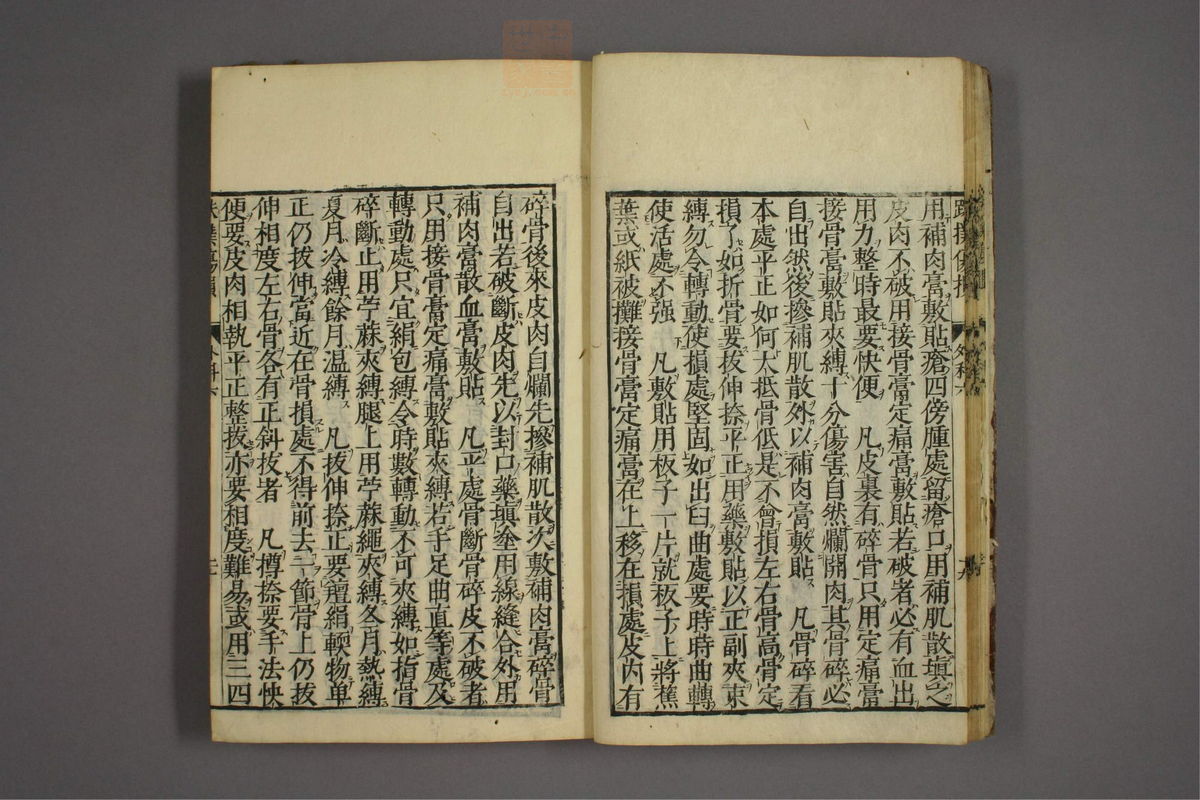 用補肉膏敷貼瘡四傍腫處留瘡口用補肌散塡之
皮肉不破用接骨膏定痛膏敷貼若破者必有血出
用力整時最要快便 凡皮裏有碎骨只用定痛膏
接骨膏敷貼夾縛十分傷害自然爛開肉其骨碎必
自出然後摻補肌散外以補肉膏敷貼 凡骨碎看
本處平正如何大抵骨低是不曾損左右骨高骨定
損了如折骨要拔伸捺平正用藥敷貼以正副夾束
縛勿令轉動使損處堅固如出臼曲處要時時曲轉
使活處不强 凡敷貼用板子一片就板子上將蕉
葉或紙被攤接骨膏定痛膏在上移在損處皮內有
碎骨後來皮肉自爛先摻補肌散次敷補肉膏碎骨
自出若破斷皮肉先以封口藥塡塗用線縫合外用
補肉膏散血膏敷貼 凡平處骨斷骨碎皮不破者
只用接骨膏定痛膏敷貼夾縛若手足曲直等處及
轉動處只宜絹包縛令時數轉動不可夾縛如指骨
碎斷止用苧蔴夾縛腿上用苧蔴繩夾縛冬月熱縛
夏月冷縛餘月温縛 凡拔伸捺正要䡔絹輭物單
正仍拔伸當近在骨損處不得前去一節骨上仍拔
伸相度左右骨各有正斜拔者 凡撙捺要手法快
便要皮肉相執平正整拔亦要相度難易或用三四